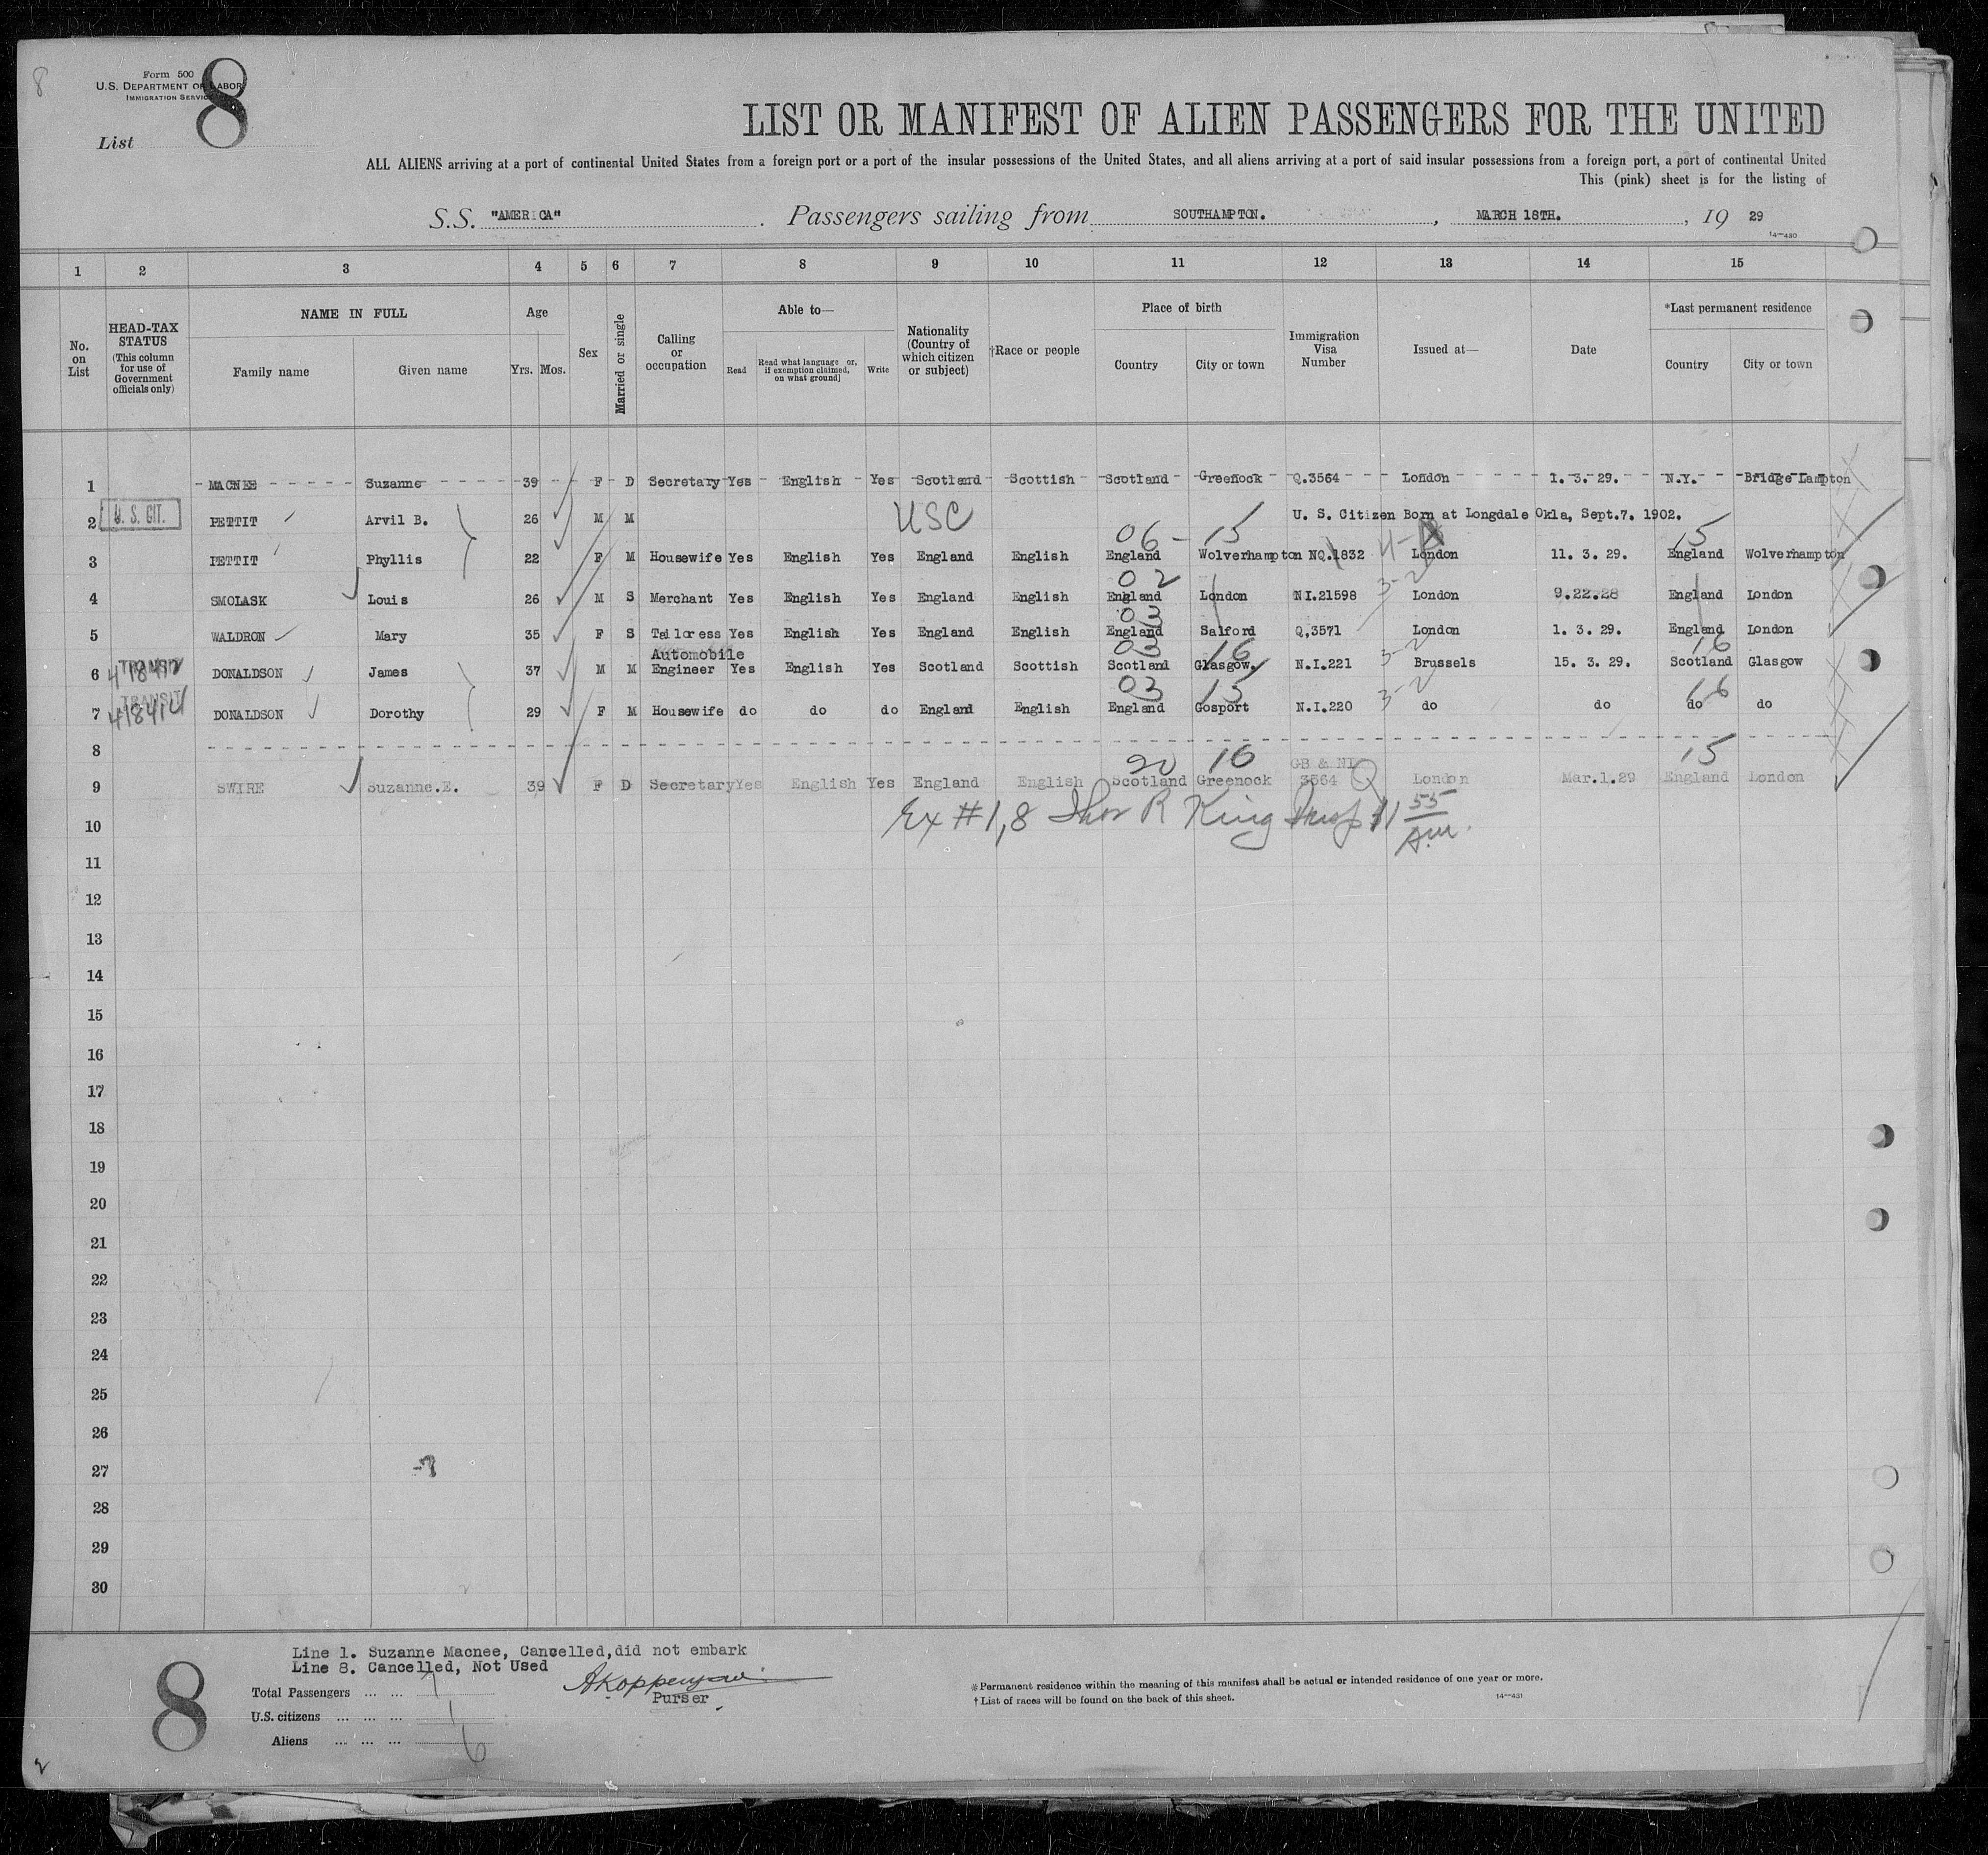 8
Form 500
U.S. DEPARTMENT OF LABOR
IMMIGRATION SERVICE
List 8
LIST OR MANIFEST OF ALIEN PASSENGERS FOR THE UNITED
ALL ALIENS arriving at a port of continental United States from a foreign port or a port of the insular possessions of the United States, and all aliens arriving at a port of said insular possessions from a foreign port, a port of continental United
This (pink) sheet is for the listing of
S.S. "AMERICA". Passengers sailing from SOUTHAMPTON., MARCH 18TH., 19 29
14-430
1 2 3 4 5 6 7 8 9 10 11 12 13 14 15
No. on List
HEAD-TAX STATUS (This column for use of Government officials only)
NAME IN FULL
Family name Given name
Age
Yrs. Mos.
Sex
Married or single
Calling or occupation
Able to—
Read
Read what language or, if exemption claimed, on what ground]
Write
Nationality (Country of which citizen or subject)
†Race or people
Place of birth
Country City or town
Immigration Visa Number
Issued at—
Date
*Last permanent residence
Country City or town
1 MACNEE Suzanne 39 F D Secretary Yes English Yes Scotland Scottish Scotland Greenock Q.3564 London 1. 3. 29. N.Y. Bridge Lampton
2 U. S. CIT. PETTIT Arvil B. 26 M M USC U. S. Citizen Born at Longdale Okla, Sept.7. 1902.
06 - 15 15
3 PETTIT Phyllis 22 F M Housewife Yes English Yes England English England Wolverhampton NQ.1832 London 11. 3. 29. England Wolverhampton
02 3-2
4 SMOLASK Louis 26 M S Merchant Yes English Yes England English England London NI.21598 London 9.22.28 England London
03
5 WALDRON Mary 35 F S Tailoress Yes English Yes England English England Salford Q,3571 London 1. 3. 29. England London
Automobile 03 16 3-2 16
6 TRANSIT DONALDSON James 37 M M Engineer Yes English Yes Scotland Scottish Scotland Glasgow. N.I.221 Brussels 15. 3. 29. Scotland Glasgow
03 15 3-2 16
7 TRANSIT DONALDSON Dorothy 29 F M Housewife do do do England English England Gosport N.I.220 do do do do
8
20 16 GB & NI 15
9 SWIRE Suzanne.E. 39 F D Secretary Yes English Yes England English Scotland Greenock 3564 Q London Mar.1.29 England London
10 Ex #1,8 King Insp 11 55 Am.
11
12
13
14
15
16
17
18
19
20
21
22
23
24
25
26
27
28
29
30
Line 1. Suzanne Macnee, Cancelled,did not embark
Line 8. Cancelled, Not Used
Total Passengers ... ... 7
Purser
U.S. citizens ... ... ... 1
Aliens ... ... ... 6
8
*Permanent residence within the meaning of this manifest shall be actual or intended residence of one year or more.
†List of races will be found on the back of this sheet.
14-431
2